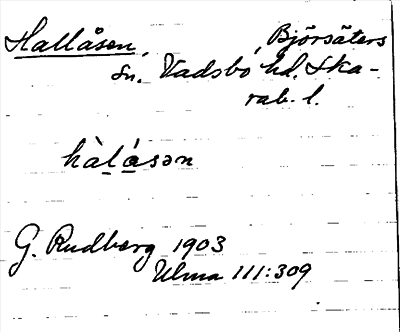 Hallåsen, Björsäters
sn. Vadsbo hd. Ska-
rab. l.
hàlåsən
G. Rudberg 1903
Ulma 111:309